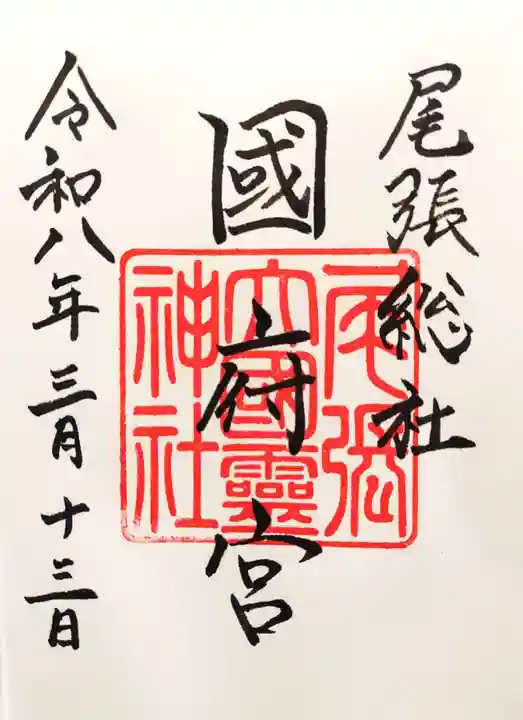 尾張総社
國府宮
令和八年三月十三日
尾張
大國靈
神社